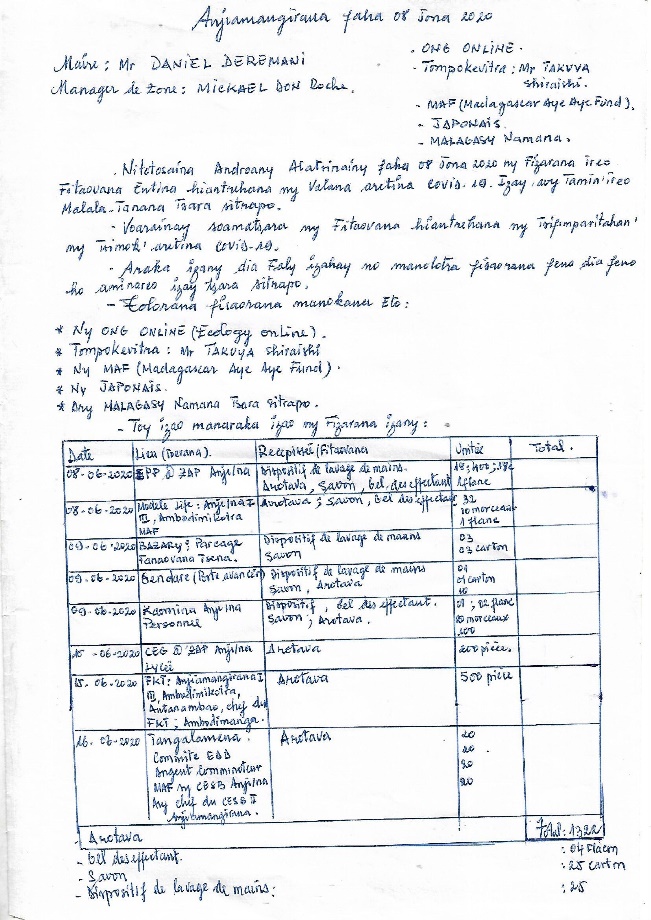 Anjiamangirana faha 08 Jona 2020
Maire : Mr DANIEL DEREMANI
Manager de Zone : MICKAEL DON Roche.
. ONG ONLINE.
- Tompokevitra : Mr TAKUYA
Shiraishi.
- MAF (Madagascar Aye Aye Fund).
- JAPONAIS.
- MALAGASY Namana.
. Nitotosaina Androany Alatsinainy faha 08 Jona 2020 ny Fizarana ireo
Fitaovana Entina hiantrehana ny Valana aretina covid-19. Izay avy Tamin'ireo
Malala-Tanana Tsara sitrapo.
- Voarainay soamatsara ny Fitaovana hiantrehana ny
ny aretina covid-19.
- Araka izany dia Faly izahay no manolotra fisaorana feno dia feno
ho aminareo izay tsara sitrapo.
- Tolorana fisaorana manokana Eto :
* Ny ONG ONLINE (Ecology online).
* Tompokevitra : Mr TAKUYA Shiraishi
* Ny MAF (Madagascar Aye Aye Fund).
* Ny JAPONAIS.
* Any MALAGASY Namana Tsara Sitrapo.
- Toy izao manaraka izao ny Fizarana izany :
Date Lieu (toerana). Receptifié (Fitaovana Unités Total.
08-06-2020 EPP @ ZAP Anje/na Dispositif de lavage de mains. 18 ; 400 ; 18c
Arotava, Savon, Gel des effectant 1 flanc
08-06-2020 Modele Life : Anje/na I Arotava ; Savon, Gel des effectant 32
III, Ambodimikoira 10 morceaux
MAF 1 flanc
09-06-2020 BAZARY ; Parcage Dispositif de lavage de mains 03
Tanaovana Tsena. Savon 03 carton
09-06-2020 Bendare (Poste avancén) Dispositif de lavage de mains 01
Savon, Arotava 01 carton
10
09-06-2020 Kaominia Anje/na Dispositif, Gel des effectant. 01 ; 02 flanc
Personnel Savon ; Arotava. 10 morceaux
100
15-06-2020 CEG @ ZAP Anje/na Arotava 200 pièce.
Lycée
15-06-2020 FKT : Anjiamangirana I Arotava 500 pièce
III, Ambodimikoira,
Antanambao, chef du
FKT ; Ambodimanga.
16-06-2020 Tangalamena. Arotava 20
Commite EBB 20
Angent Comminateur 20
MAF ny CESB Anje/na 20
Any chef du CESB II
Anjiamangirana.
- Arotava Total : 1322
- Gel des effectant. : 04 Flacon
- Savon : 25 Carton
- Dispositif de lavage de mains : : 25